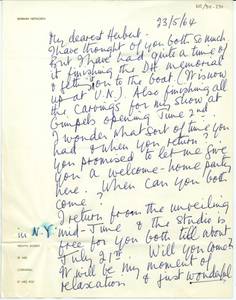 BARBARA HEPWORTH
23/5/64
My dearest Herbert.
I have thought of you both so much.
But I have had quite a time of
it finishing the DH memorial
& getting to the boat (it is now
up at U.N.) Also finishing all
the carvings for my show at
Gimpels opening June 2nd
I wonder what sort of time you
had & when you return
you promised to let me give
you a welcome-home party
here. When can you both
come?
I return from the unveiling
in N.Y. mid-June & the studio is
free for you both till about
July 21st. Will you come?
It will be my moment of
relaxation & just wonderful
TREWYN STUDIO
ST IVES
CORNWALL